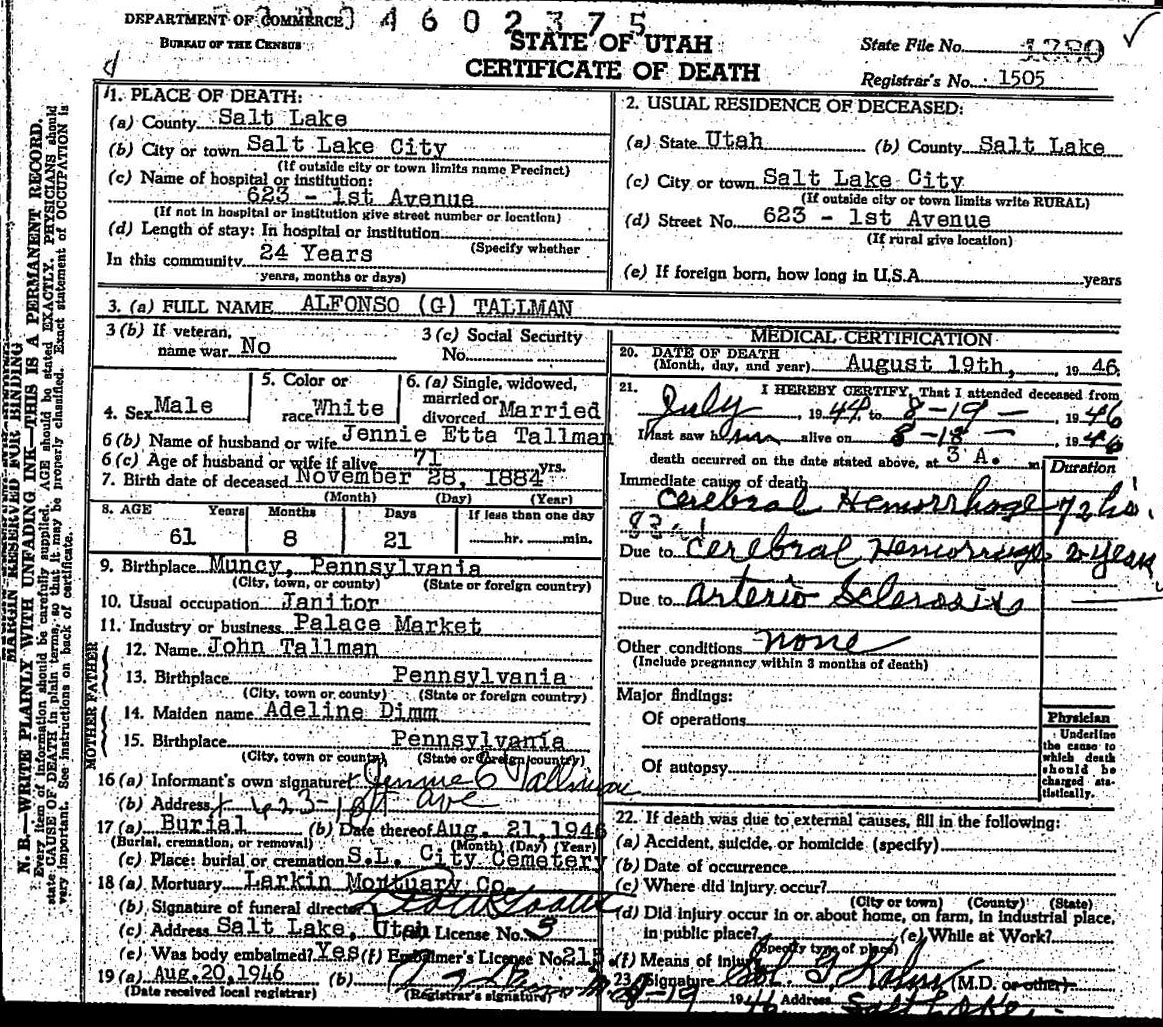 DEPARTMENT OF COMMERCE
4 6 0 2 3 7 5
BUREAU OF THE CENSUS
STATE OF UTAH
CERTIFICATE OF DEATH
State File No. 1380
Registrar's No. 1505
MARGIN RESERVED FOR BINDING
N. B.—WRITE PLAINLY WITH UNFADING INK—THIS IS A PERMANENT RECORD.
Every item of information should be carefully supplied. AGE should be stated EXACTLY. PHYSICIANS should
state CAUSE OF DEATH in plain terms, so that it may be properly classified. Exact statement of OCCUPATION is
very important. See instructions on back of certificate.
1. PLACE OF DEATH:
(a) County Salt Lake
(b) City or town Salt Lake City
(If outside city or town limits name Precinct)
(c) Name of hospital or institution:
623 - 1st Avenue
(If not in hospital or institution give street number or location)
(d) Length of stay: In hospital or institution
(Specify whether
In this community 24 Years
years, months or days)
2. USUAL RESIDENCE OF DECEASED:
(a) State Utah (b) County Salt Lake
(c) City or town Salt Lake City
(If outside city or town limits write RURAL)
(d) Street No. 623 - 1st Avenue
(If rural give location)
(e) If foreign born, how long in U.S.A. years
3. (a) FULL NAME ALFONSO (G) TALLMAN
3 (b) If veteran,
name war No
3 (c) Social Security
No.
4. Sex Male
5. Color or
race White
6. (a) Single, widowed,
married or
divorced Married
6 (b) Name of husband or wife Jennie Etta Tallman
6 (c) Age of husband or wife if alive 71 yrs.
7. Birth date of deceased November 28, 1884
(Month) (Day) (Year)
8. AGE Years Months Days If less than one day
61 8 21 hr. min.
9. Birthplace Muncy, Pennsylvania
(City, town, or county) (State or foreign country)
10. Usual occupation Janitor
11. Industry or business Palace Market
FATHER
12. Name John Tallman
13. Birthplace Pennsylvania
(City, town or county) (State or foreign country)
MOTHER
14. Maiden name Adeline Dimm
15. Birthplace Pennsylvania
(City, town or county) (State or foreign country)
16 (a) Informant's own signature x Jennie E Tallman
(b) Address x 623-1st Ave
17 (a) Burial (b) Date thereof Aug. 21, 1946
(Burial, cremation, or removal) (Month) (Day) (Year)
(c) Place: burial or cremation S.L. City Cemetery
18 (a) Mortuary Larkin Mortuary Co.
(b) Signature of funeral director
(c) Address Salt Lake, Utah License No. 3
(e) Was body embalmed? Yes (f) Embalmer's License No. 215
19 (a) Aug. 20, 1946 (b)
(Date received local registrar) (Registrar's signature)
MEDICAL CERTIFICATION
20. DATE OF DEATH
(Month, day, and year) August 19th, 19 46
21. I HEREBY CERTIFY, That I attended deceased from
July, 1944 to 8-19-, 1946
I last saw him alive on 8-18-, 1946
death occurred on the date stated above, at 3 A. m
Duration
Immediate cause of death
Cerebral Hemorrhage 72 hrs.
83-1
Due to Cerebral Hemorrhage 2 years
Due to Arterio Sclerosis
Other conditions none
(Include pregnancy within 3 months of death)
Major findings:
Of operations
Of autopsy
Physician
Underline
the cause to
which death
should be
charged sta-
tistically.
22. If death was due to external causes, fill in the following:
(a) Accident, suicide, or homicide (specify)
(b) Date of occurrence
(c) Where did injury occur?
(City or town) (County) (State)
(d) Did injury occur in or about home, on farm, in industrial place,
in public place? (e) While at Work?
(Specify type of place)
(f) Means of injury
23. Signature Sol. G. Kahn (M.D. or other)
8-19 1946 Address Salt Lake